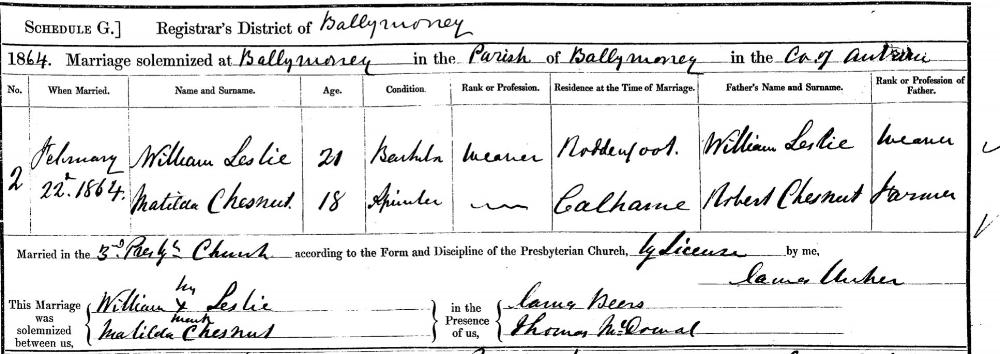 SCHEDULE G.] Registrar's District of Ballymoney
1864. Marriage solemnized at Ballymoney in the Parish of Ballymoney in the Co of Antrim
No. When Married. Name and Surname. Age. Condition. Rank or Profession. Residence at the Time of Marriage. Father's Name and Surname. Rank or Profession of Father.
2 February 22d 1864. William Leslie 21 Bachelor Weaver Roddenfoot. William Leslie Weaver
Matilda Chesnut. 18 Spinster Calhame Robert Chesnut Farmer
Married in the 3rd Presbyn Church according to the Form and Discipline of the Presbyterian Church, by License by me,
James
This Marriage was solemnized between us, William his x mark Leslie in the Presence of us, James Beers
Matilda Chesnut Thomas McConal